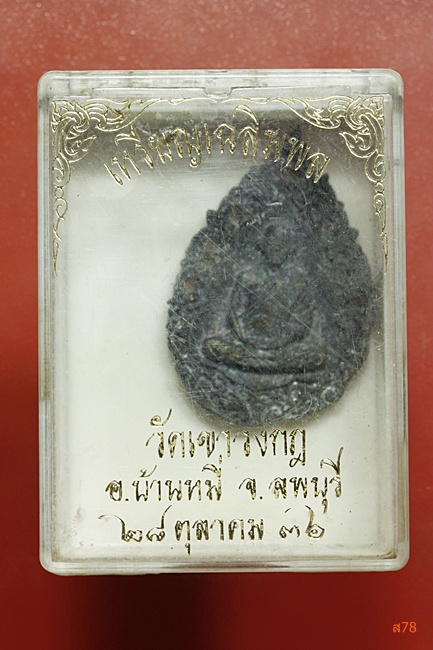 เหรียญเฉลิมพล
วัดเขาวงกฎ
อ.บ้านหมี่ จ.ลพบุรี
๒๘ ตุลาคม ๓๖
ส78